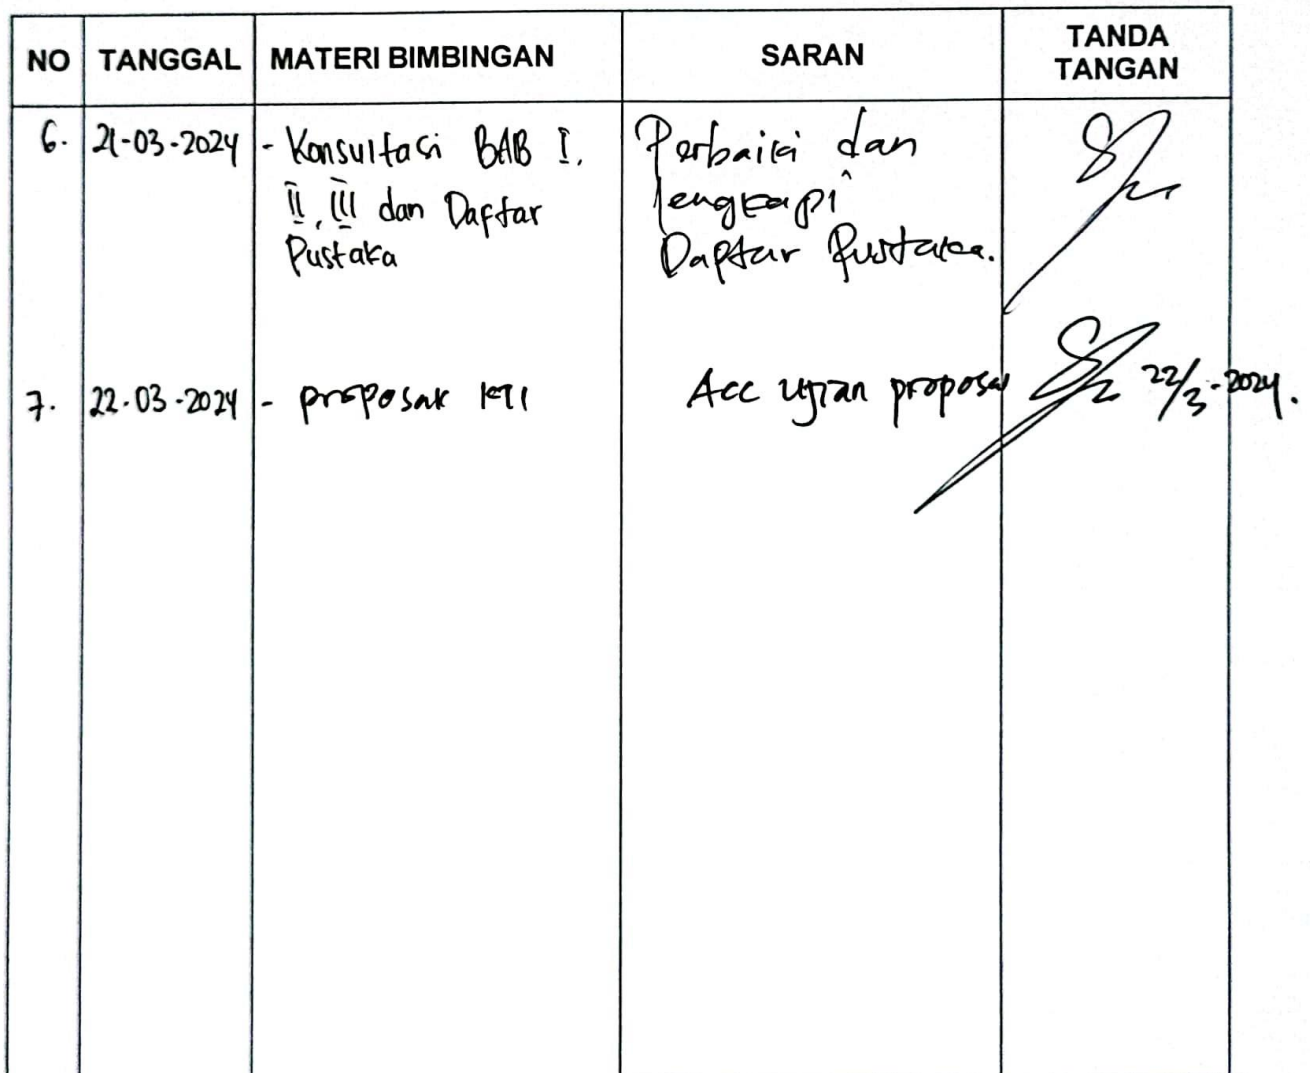 NO TANGGAL MATERI BIMBINGAN SARAN TANDA TANGAN
6. 21-03-2024 - Konsultasi BAB I,
II, III dan Daftar
Pustaka
Perbaiki dan
lengkapi
Daftar Pustaka.
7. 22-03-2024 - proposal KTI
Acc ujian proposal
22/3-2024.